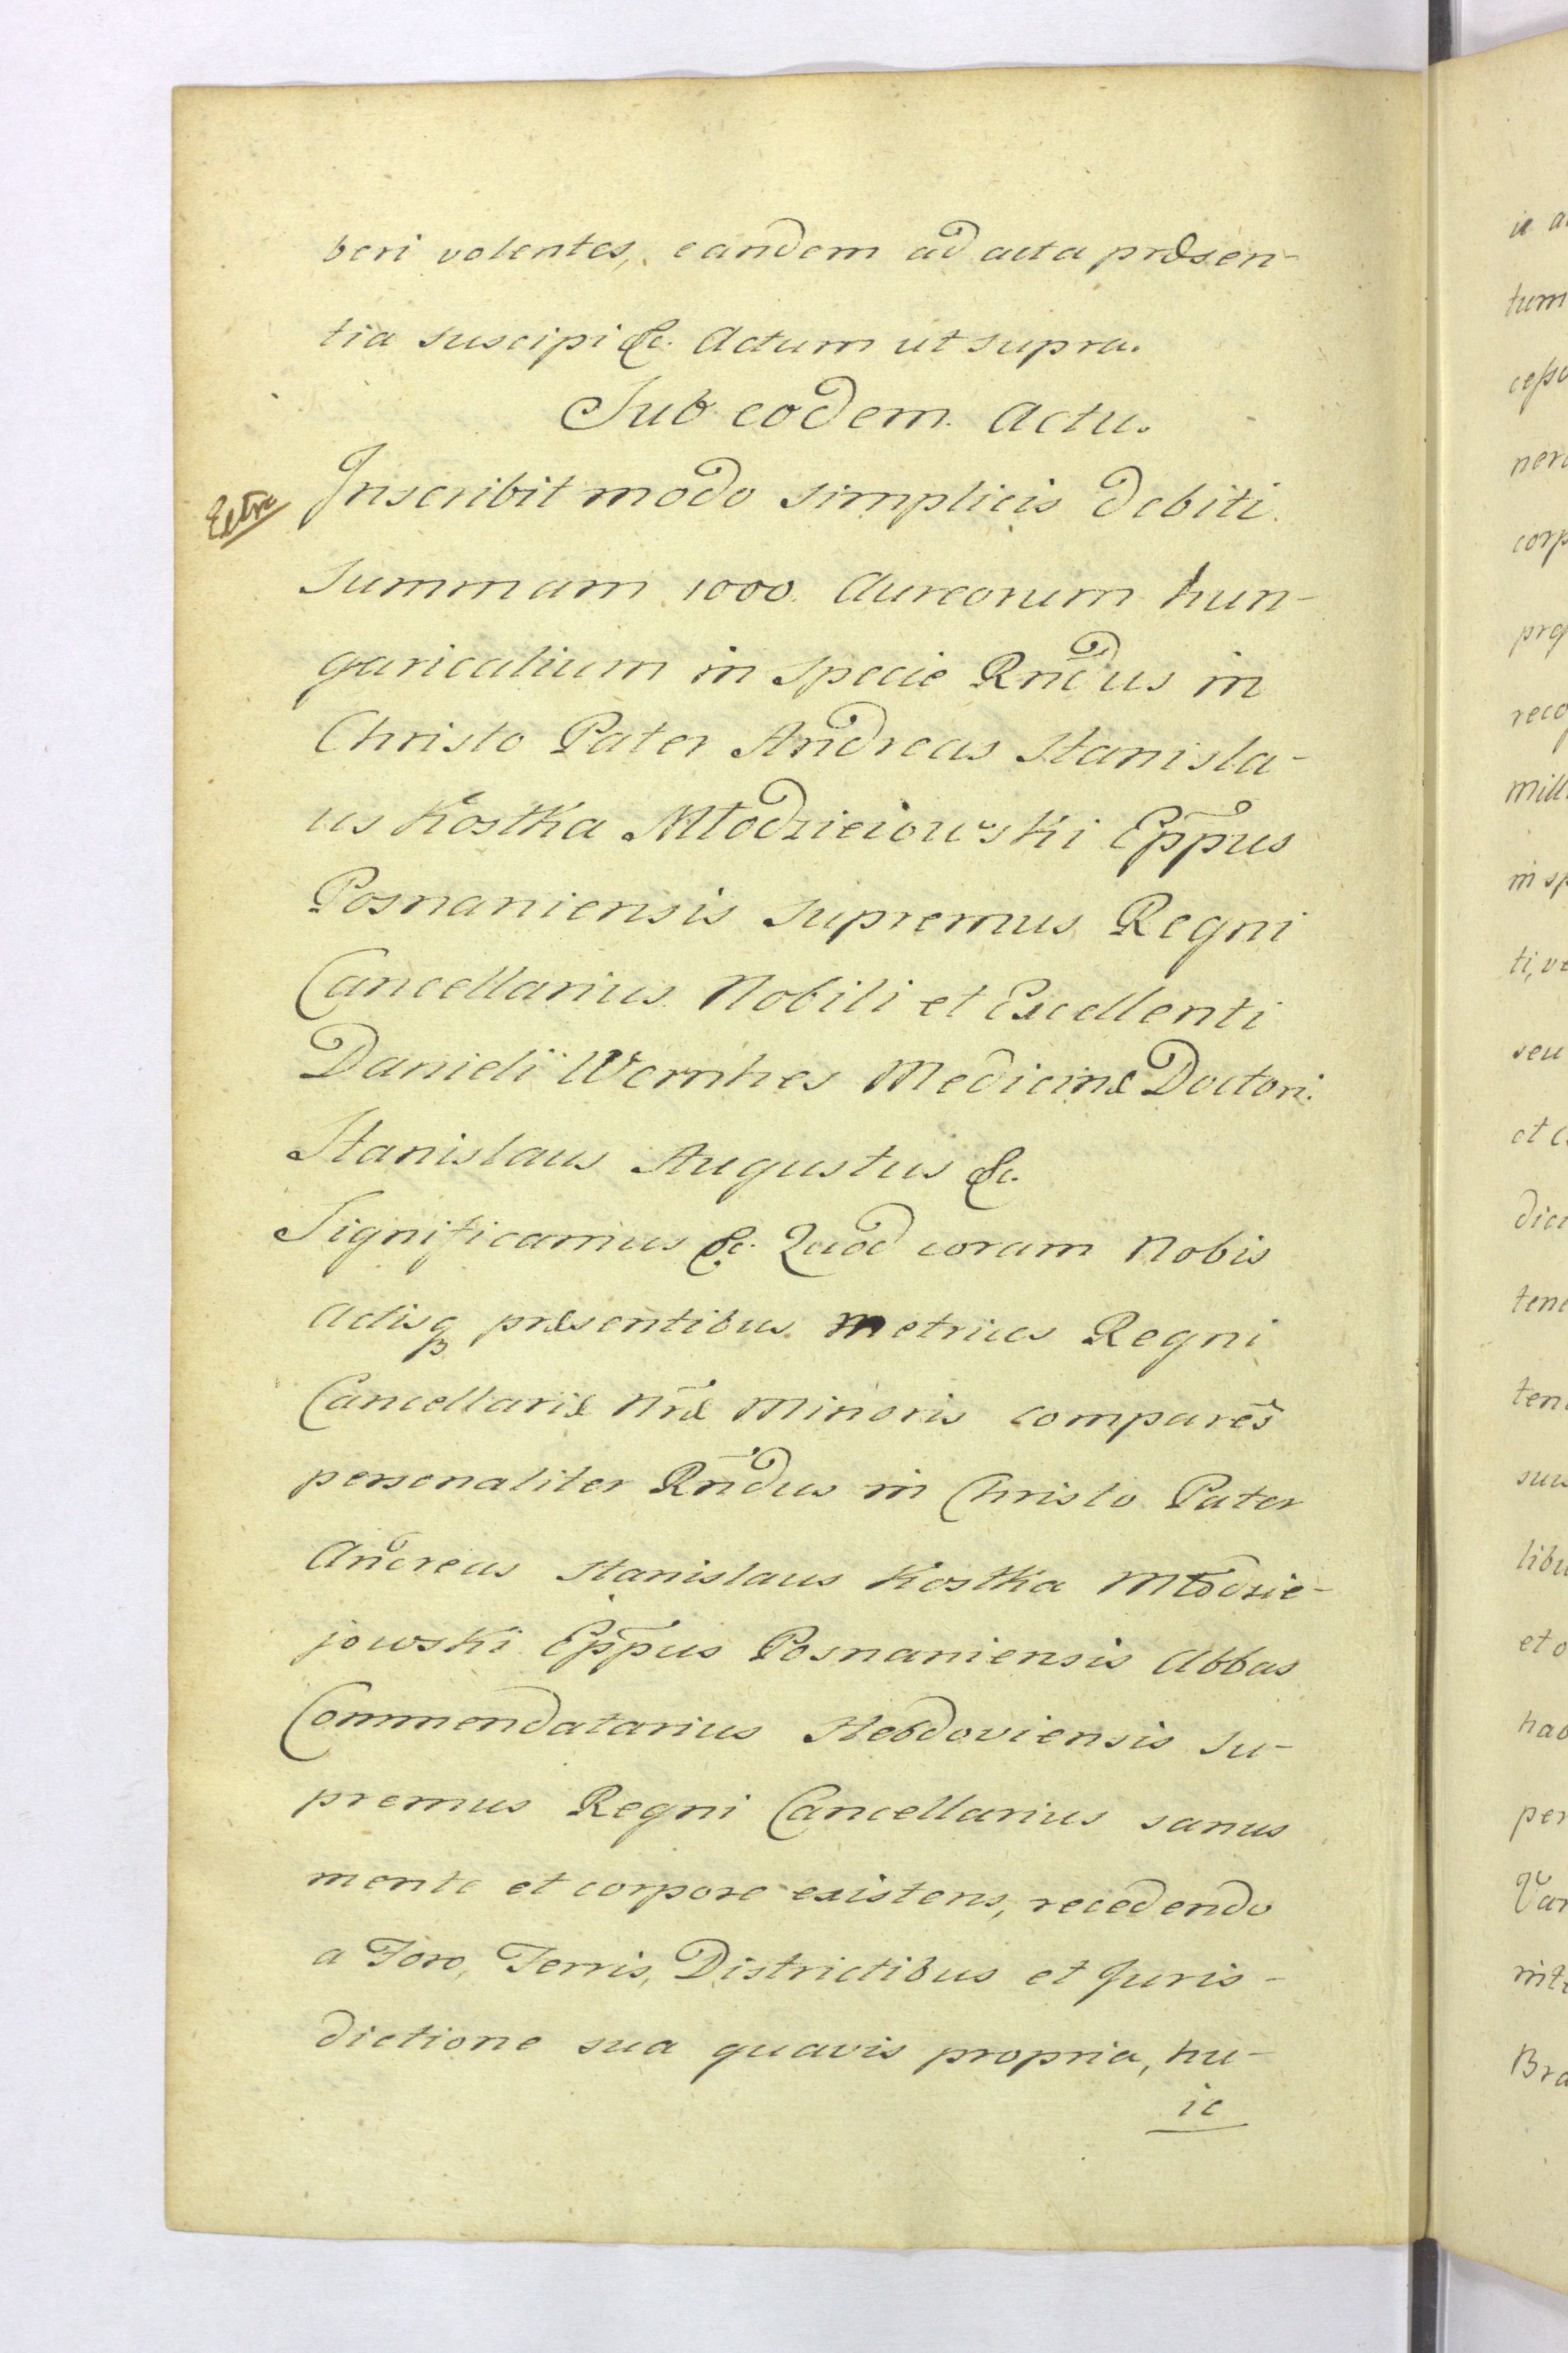 beri volentes, eandem ad acta præsen-
tia suscipi &c. Actum ut supra.
Sub eodem Actu.
Inscribit modo simplicis debiti
summam 1000. Aureorum hun-
garicalium in specie Rndus in
Christo Pater Andreas Stanisla-
us Kostka Młodzieiowski Eppus
Posnaniensis supremus Regni
Cancellarius Nobili et Excellenti
Danieli Wernhes Medicinæ Doctori.
Stanislaus Augustus &c.
Significamus &c. Quod coram Nobis
Actisq præsentibus Metrices Regni
Cancellariæ Nræ Minoris comparēs
personaliter Rndus in Christo Pater
Andreas Stanislaus Kostka Młodzie-
jowski Eppus Posnaniensis Abbas
Commendatarius Hebdoviensis Su-
premus Regni Cancellarius sanus
mente et corpore existens, recedendo
a Foro, Terris, Districtibus et Juris-
dictione sua quavis propria, hu-
ic